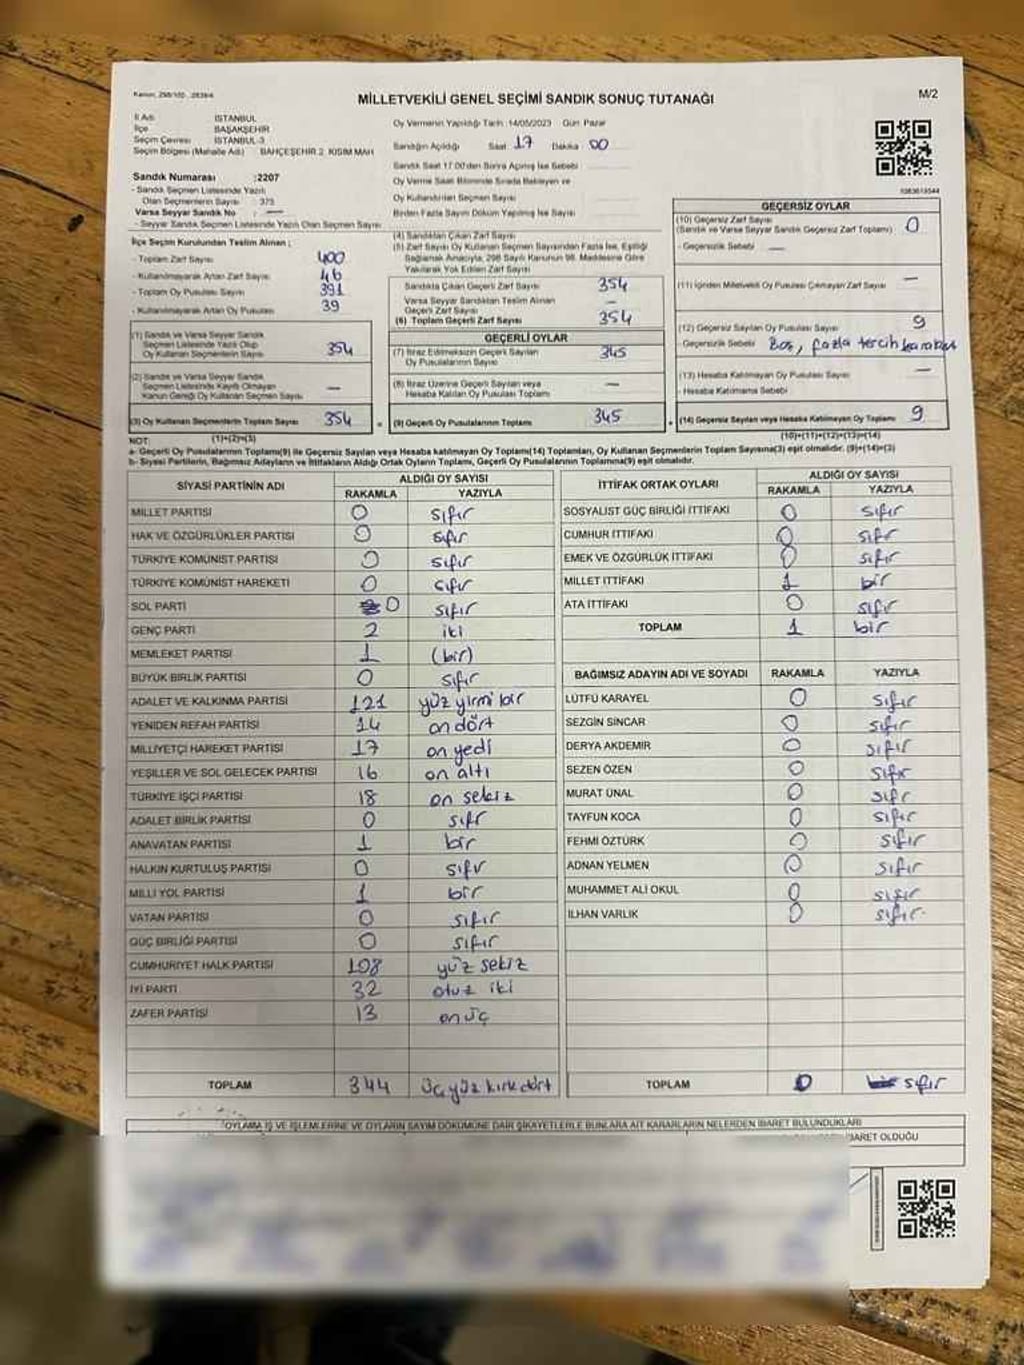 MİLLETVEKİLİ GENEL SEÇİMİ SANDIK SONUÇ TUTANAĞI
M/2
İl Adı : İSTANBUL
İlçe : BAŞAKŞEHİR
Seçim Çevresi : İSTANBUL-3
Seçim Bölgesi (Mahalle Adı) : BAHÇEŞEHİR 2. KISIM MAH
Oy Vermenin Yapıldığı Tarih :14/05/2023 Gün Pazar
Sandığın Açıldığı Saat 17 Dakika 00
Sandık Saat 17.00'den Sonra Açılmış İse Sebebi
Oy Verme Saati Bitiminde Sırada Bekleyen ve
Oy Kullandırılan Seçmen Sayısı
Birden Fazla Sayım Döküm Yapılmış İse Sayısı
Sandık Numarası :2207
- Sandık Seçmen Listesinde Yazılı
Olan Seçmenlerin Sayısı : 373
Varsa Seyyar Sandık No : —
- Seyyar Sandık Seçmen Listesinde Yazılı Olan Seçmen Sayısı
İlçe Seçim Kurulundan Teslim Alınan ;
- Toplam Zarf Sayısı 400
- Kullanılmayarak Artan Zarf Sayısı 46
- Toplam Oy Pusulası Sayısı 391
- Kullanılmayarak Artan Oy Pusulası 39
(1) Sandık ve Varsa Seyyar Sandık
Seçmen Listesinde Yazılı Olup
Oy Kullanan Seçmenlerin Sayısı 354
(2) Sandık ve Varsa Seyyar Sandık
Seçmen Listesinde Kayıtlı Olmayan
Kanun Gereği Oy Kullanan Seçmen Sayısı —
(3) Oy Kullanan Seçmenlerin Toplam Sayısı 354
(1)+(2)=(3)
(4) Sandıktan Çıkan Zarf Sayısı
(5) Zarf Sayısı Oy Kullanan Seçmen Sayısından Fazla İse, Eşitliği
Sağlamak Amacıyla, 298 Sayılı Kanunun 98. Maddesine Göre
Yakılarak Yok Edilen Zarf Sayısı
Sandıkta Çıkan Geçerli Zarf Sayısı 354
Varsa Seyyar Sandıktan Teslim Alınan
Geçerli Zarf Sayısı —
(6) Toplam Geçerli Zarf Sayısı 354
GEÇERLİ OYLAR
(7) İtiraz Edilmeksizin Geçerli Sayılan
Oy Pusulalarının Sayısı 345
(8) İtiraz Üzerine Geçerli Sayılan veya
Hesaba Katılan Oy Pusulası Toplamı —
(9) Geçerli Oy Pusulalarının Toplamı 345
GEÇERSİZ OYLAR
(10) Geçersiz Zarf Sayısı
(Sandık ve Varsa Seyyar Sandık Geçersiz Zarf Toplamı) 0
- Geçersizlik Sebebi —
(11) İçinden Milletvekili Oy Pusulası Çıkmayan Zarf Sayısı —
(12) Geçersiz Sayılan Oy Pusulası Sayısı 9
- Geçersizlik Sebebi Boş, fazla tercih
(13) Hesaba Katılmayan Oy Pusulası Sayısı —
- Hesaba Katılmama Sebebi
(14) Geçersiz Sayılan veya Hesaba Katılmayan Oy Toplamı 9
(10)+(11)+(12)+(13)=(14)
NOT:
a- Geçerli Oy Pusulalarının Toplamı(9) ile Geçersiz Sayılan veya Hesaba katılmayan Oy Toplamı(14) Toplamları, Oy Kullanan Seçmenlerin Toplam Sayısına(3) eşit olmalıdır. (9)+(14)=(3)
b- Siyasi Partilerin, Bağımsız Adayların ve İttifakların Aldığı Ortak Oyların Toplamı, Geçerli Oy Pusulalarının Toplamına(9) eşit olmalıdır.
SİYASİ PARTİNİN ADI ALDIĞI OY SAYISI
RAKAMLA YAZIYLA
MİLLET PARTİSİ 0 sıfır
HAK VE ÖZGÜRLÜKLER PARTİSİ 0 sıfır
TÜRKİYE KOMÜNİST PARTİSİ 0 sıfır
TÜRKİYE KOMÜNİST HAREKETİ 0 sıfır
SOL PARTİ 0 sıfır
GENÇ PARTİ 2 iki
MEMLEKET PARTİSİ 1 (bir)
BÜYÜK BİRLİK PARTİSİ 0 sıfır
ADALET VE KALKINMA PARTİSİ 121 yüz yirmi bir
YENİDEN REFAH PARTİSİ 14 on dört
MİLLİYETÇİ HAREKET PARTİSİ 17 on yedi
YEŞİLLER VE SOL GELECEK PARTİSİ 16 on altı
TÜRKİYE İŞÇİ PARTİSİ 18 on sekiz
ADALET BİRLİK PARTİSİ 0 sıfır
ANAVATAN PARTİSİ 1 bir
HALKIN KURTULUŞ PARTİSİ 0 sıfır
MİLLİ YOL PARTİSİ 1 bir
VATAN PARTİSİ 0 sıfır
GÜÇ BİRLİĞİ PARTİSİ 0 sıfır
CUMHURİYET HALK PARTİSİ 108 yüz sekiz
İYİ PARTİ 32 otuz iki
ZAFER PARTİSİ 13 on üç
TOPLAM 344 üç yüz kırk dört
İTTİFAK ORTAK OYLARI ALDIĞI OY SAYISI
RAKAMLA YAZIYLA
SOSYALİST GÜÇ BİRLİĞİ İTTİFAKI 0 sıfır
CUMHUR İTTİFAKI 0 sıfır
EMEK VE ÖZGÜRLÜK İTTİFAKI 0 sıfır
MİLLET İTTİFAKI 1 bir
ATA İTTİFAKI 0 sıfır
TOPLAM 1 bir
BAĞIMSIZ ADAYIN ADI VE SOYADI RAKAMLA YAZIYLA
LÜTFÜ KARAYEL 0 sıfır
SEZGİN SİNCAR 0 sıfır
DERYA AKDEMİR 0 sıfır
SEZEN ÖZEN 0 sıfır
MURAT ÜNAL 0 sıfır
TAYFUN KOCA 0 sıfır
FEHMİ ÖZTÜRK 0 sıfır
ADNAN YELMEN 0 sıfır
MUHAMMET ALİ OKUL 0 sıfır
İLHAN VARLIK 0 sıfır
TOPLAM 0 sıfır
OYLAMA İŞ VE İŞLEMLERİNE VE OYLARIN SAYIM DÖKÜMÜNE DAİR ŞİKAYETLERLE BUNLARA AİT KARARLARIN NELERDEN İBARET BULUNDUKLARI
İBARET OLDUĞU